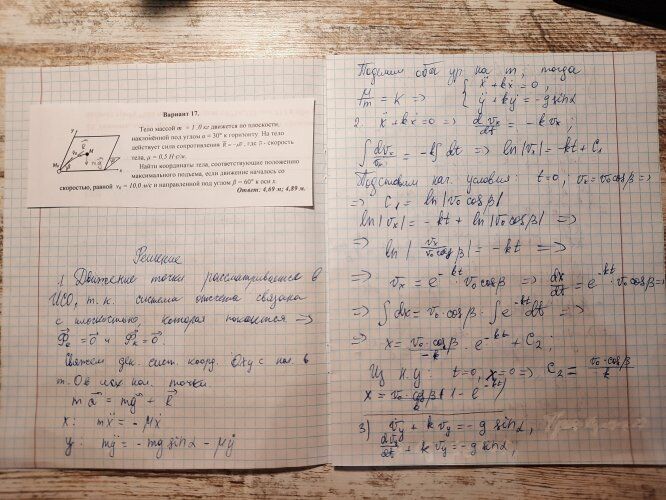 Вариант 17.
Тело массой m = 1,0 кг движется по плоскости,
наклонённой под углом α = 30° к горизонту. На тело
действует сила сопротивления R̄ = −μῡ, где ῡ - скорость
тела, μ = 0,5 Н·с/м.
Найти координаты тела, соответствующие положению
максимального подъема, если движение началось со
скоростью, равной v₀ = 10,0 м/с и направленной под углом β = 60° к оси x.
Ответ: 4,69 м; 4,89 м.
Решение
1. Движение точки рассматривается в
ИСО, т.к. система отсчета связана
с плоскостью, которая покоится =>
Φ⃗e = 0⃗ и Φ⃗k = 0⃗.
Свяжем дек. сист. коорд. Oxy с нач. в
т. О в исх. пол. точки.
m a⃗ = m g⃗ + R⃗
x: mẍ = - μẋ
y: mÿ = - mg sinα - μẏ
Поделим оба ур. на m, тогда
μ/m = k => { ẍ + kẋ = 0,
ÿ + kẏ = - g sinα
2. ẍ + kẋ = 0 => dvx/dt = - k vx;
∫ dvx/vx = - k∫ dt => ln|vx| = - kt + C1
Подставим нач. условия: t=0; vx = v0 cosβ =>
=> C1 = ln|v0 cosβ|
ln|vx| = - kt + ln|v0 cosβ| =>
=> ln| vx/v0 cosβ | = - kt =>
=> vx = e^-kt · v0 cosβ => dx/dt = e^-kt · v0 cosβ =>
=> ∫ dx = v0 · cosβ · ∫ e^-kt dt =>
=> x = v0 · cosβ/-k · e^-kt + C2;
Из н.у: t=0, x=0 => C2 = v0 · cosβ/k
x = v0 · cosβ/k (1 - e^-kt)
3) v̇y + k vy = - g sinα
dvy/dt + k vy = - g sinα;